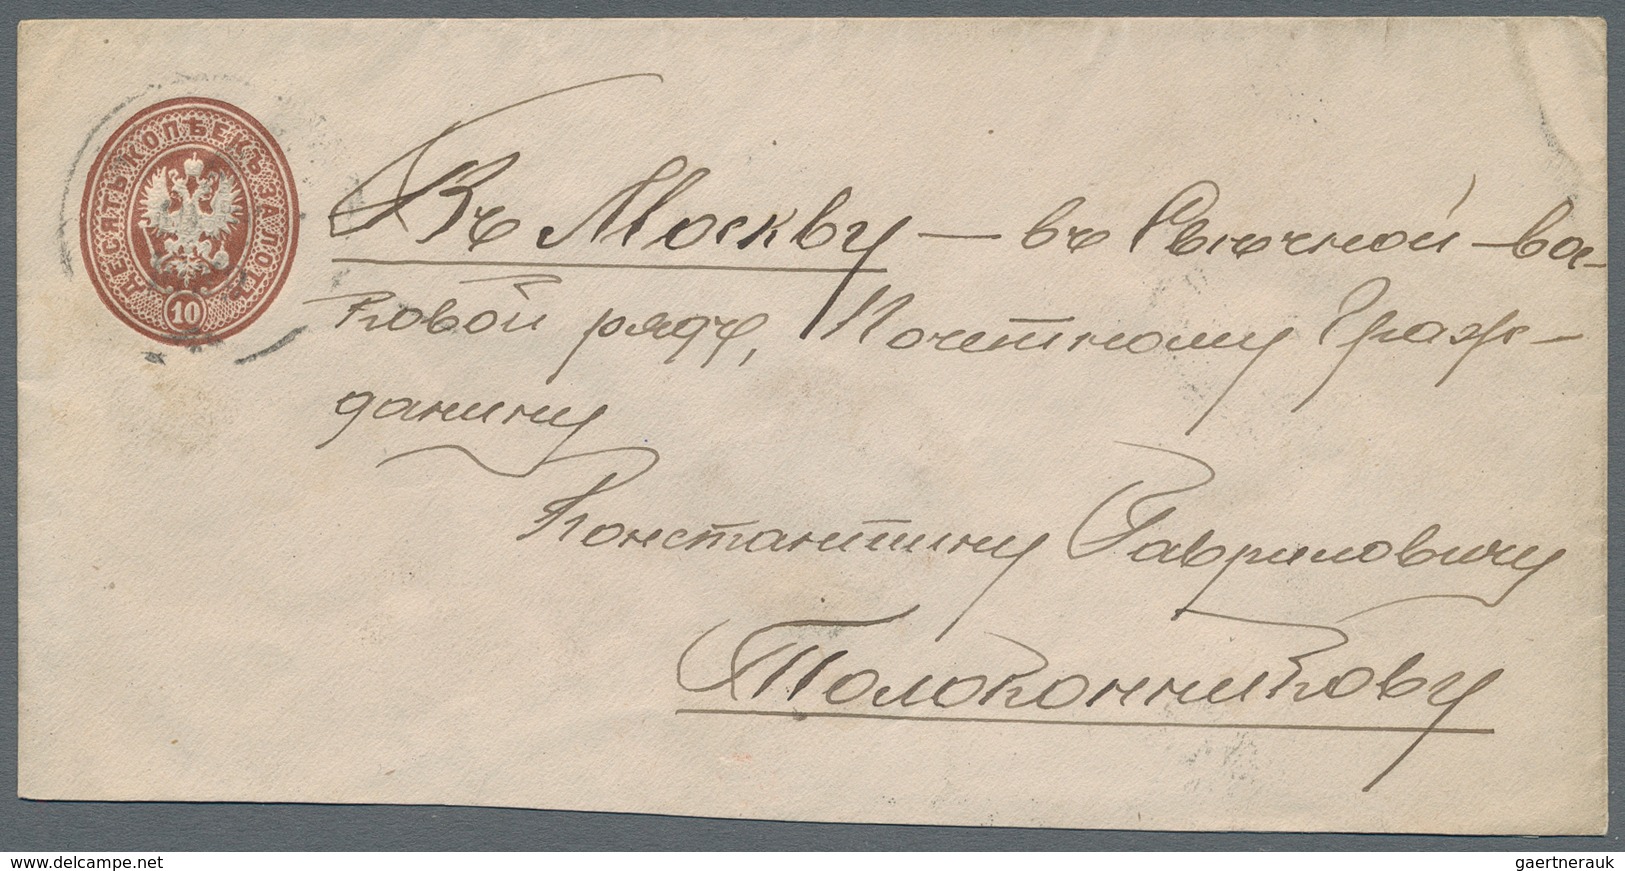 ДЕСЯТЬ КОПѢЕКЪ ЗА ЛОТЪ
10
Въ Москву — въ
ковой ряду, Почетному Граж-
данину
Константину Гавриловичу
Толоконникову
www.delcampe.net
gaertnerauk